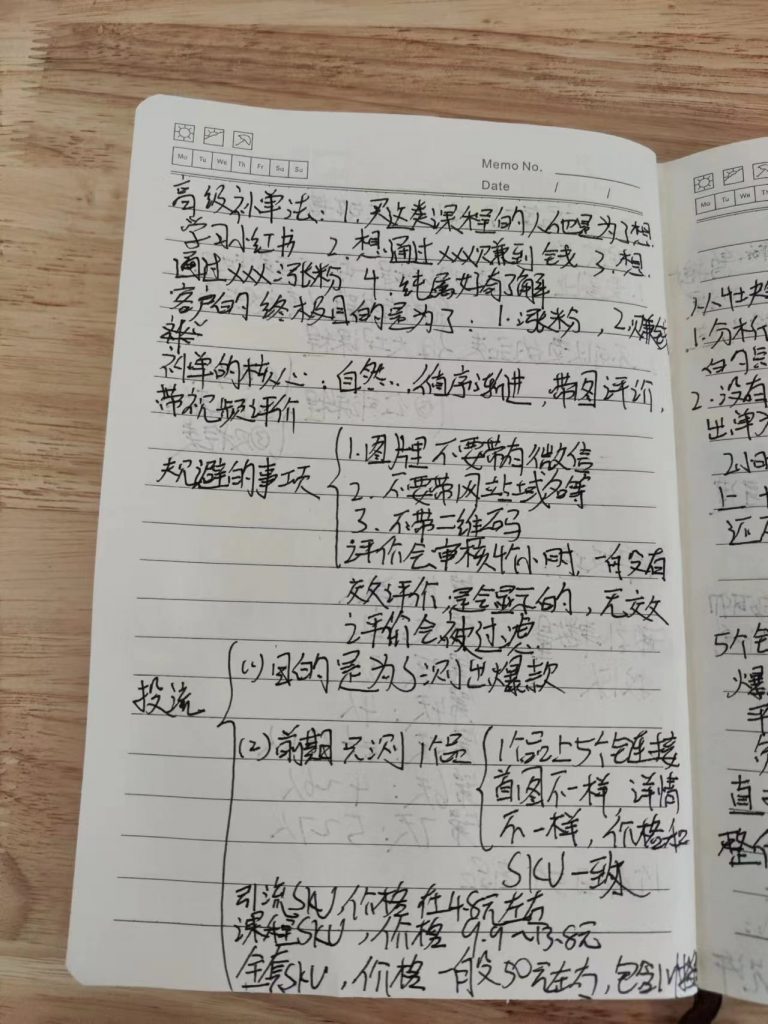 Mo Tu We Th Fr Sa Su
Memo No.
Date / /
高级补单法: 1. 买这类课程的人他是为了想
学习小红书 2. 想通过xxx赚到钱 3. 想
通过xxx涨粉 4. 纯属好奇了解
客户的终极目的是为了: 1. 涨粉, 2. 赚钱
补单的核心: 自然..., 循序渐进, 带图评价,
带视频评价
规避的事项
1. 图片里不要带有微信
2. 不要带网站域名等
3. 不带二维码
评价会审核4个小时, 一般没有
效评价, 是会显示的, 无效
评价会被过滤
投流
(1) 目的是为了测出爆款
(2) 前期 先测1个品
1个品上5个链接
首图不一样 详情
不一样, 价格和
SKU一致
引流SKU, 价格在4.8元左右
课程SKU, 价格 9.9~13.8元
全套SKU, 价格一般50元左右, 包含
Mo Tu We Th
1. 分析
2. 没有
出单
5个
爆
平
直
整个